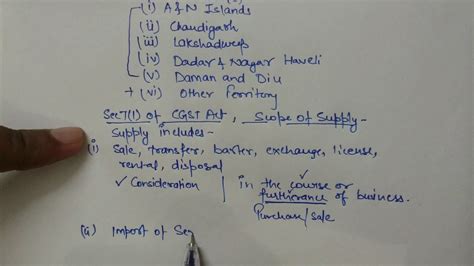 (i) A & N Islands
(ii) Chandigarh
(iii) Lakshadweep
(iv) Dadar & Nagar Haveli
(v) Daman and Diu
+ (vi) Other Territory
Sec 7(1) of CGST Act, Scope of Supply-
Supply includes-
(i) Sale, transfer, barter, exchange, license,
rental, disposal
✓ Consideration | in the course or
furtherance of business.
Purchase/sale
(ii) Import of Ser